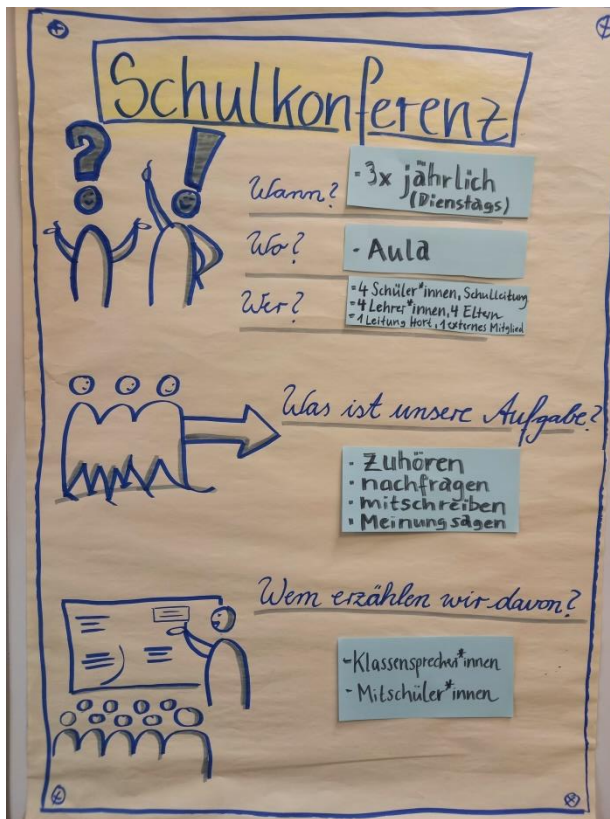 Schulkonferenz
Wann?
- 3x jährlich
(Dienstags)
Wo?
- Aula
Wer?
- 4 Schüler*innen, Schulleitung
- 4 Lehrer*innen, 4 Eltern
- 1 Leitung Hort, 1 externes Mitglied
Was ist unsere Aufgabe?
· Zuhören
· nachfragen
· mitschreiben
· Meinung sagen
Wem erzählen wir davon?
- Klassensprecher*innen
- Mitschüler*innen